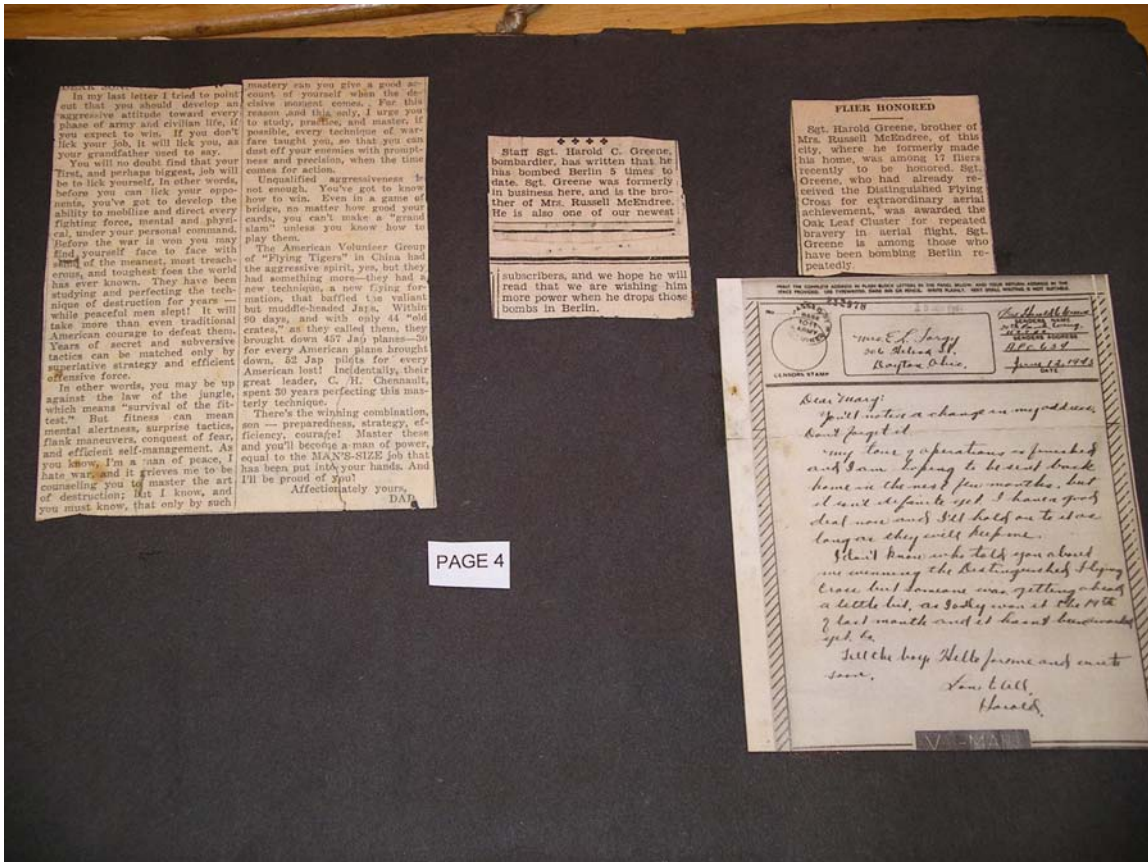 DEAR SON:
In my last letter I tried to point
out that you should develop an
aggressive attitude toward every
phase of army and civilian life, if
you expect to win. If you don't
lick your job, it will lick you, as
your grandfather used to say.
You will no doubt find that your
first, and perhaps biggest, job will
be to lick yourself. In other words,
before you can lick your oppo-
nents, you've got to develop the
ability to mobilize and direct every
fighting force, mental and physi-
cal, under your personal command.
Before the war is won you may
find yourself face to face with
some of the meanest, most treach-
erous, and toughest foes the world
has ever known. They have been
studying and perfecting the tech-
nique of destruction for years —
while peaceful men slept! It will
take more than even traditional
American courage to defeat them.
Years of secret and subversive
tactics can be matched only by
superlative strategy and efficient
offensive force.
In other words, you may be up
against the law of the jungle,
which means "survival of the fit-
test." But fitness can mean
mental alertness, surprise tactics,
flank maneuvers, conquest of fear,
and efficient self-management. As
you know, I'm a man of peace, I
hate war, and it grieves me to be
counseling you to master the art
of destruction; but I know, and
you must know, that only by such
mastery can you give a good ac-
count of yourself when the de-
cisive moment comes. For this
reason and this only, I urge you
to study, practice, and master, if
possible, every technique of war-
fare taught you, so that you can
dust off your enemies with prompt-
ness and precision, when the time
comes for action.
Unqualified aggressiveness is
not enough. You've got to know
how to win. Even in a game of
bridge, no matter how good your
cards, you can't make a "grand
slam" unless you know how to
play them.
The American Volunteer Group
of "Flying Tigers" in China had
the aggressive spirit, yes, but they
had something more—they had a
new technique, a new flying for-
mation, that baffled the valiant
but muddle-headed Japs. Within
90 days, and with only 44 "old
crates," as they called them, they
brought down 457 Jap planes—30
for every American plane brought
down, 52 Jap pilots for every
American lost! Incidentally, their
great leader, C. H. Chennault,
spent 30 years perfecting this mas-
terly technique.
There's the winning combination,
son — preparedness, strategy, ef-
ficiency, courage! Master these
and you'll become a man of power,
equal to the MAN'S-SIZE job that
has been put into your hands. And
I'll be proud of you!
Affectionately yours,
DAD.
Staff Sgt. Harold C. Greene,
bombardier, has written that he
has bombed Berlin 5 times to
date. Sgt. Greene was formerly
in business here, and is the bro-
ther of Mrs. Russell McEndree.
He is also one of our newest
subscribers, and we hope he will
read that we are wishing him
more power when he drops those
bombs in Berlin.
FLIER HONORED
Sgt. Harold Greene, brother of
Mrs. Russell McEndree, of this
city, where he formerly made
his home, was among 17 fliers
recently to be honored. Sgt.
Greene, who had already re-
ceived the Distinguished Flying
Cross for extraordinary aerial
achievement, was awarded the
Oak Leaf Cluster for repeated
bravery in aerial flight. Sgt.
Greene is among those who
have been bombing Berlin re-
peatedly.
PRINT THE COMPLETE ADDRESS IN PLAIN BLOCK LETTERS IN THE PANEL BELOW, AND YOUR RETURN ADDRESS IN THE
SPACE PROVIDED.
PASSED BY
BASE
ARMY
CENSOR'S STAMP
Mrs. E. L.
306 Helena St.
Dayton Ohio.
SENDER'S NAME
SENDER'S ADDRESS
A.P.O. 634
June 12, 1943
DATE
Dear Mary:
You'll notice a change in my address,
Don't forget it.
My tour of operations is finished
and I am hoping to be sent back
home in the next few months, but
it isn't definite yet. I have a good
deal now and I'll hold on to it as
long as they will keep me.
I don't know who told you about
me winning the Distinguished Flying
Cross but someone was getting ahead
a little bit, as I only won it the 14th
of last month and it hasn't been awarded
yet.
Tell the boys Hello for me and write
soon.
Love to All,
Harold.
V-MAIL
PAGE 4